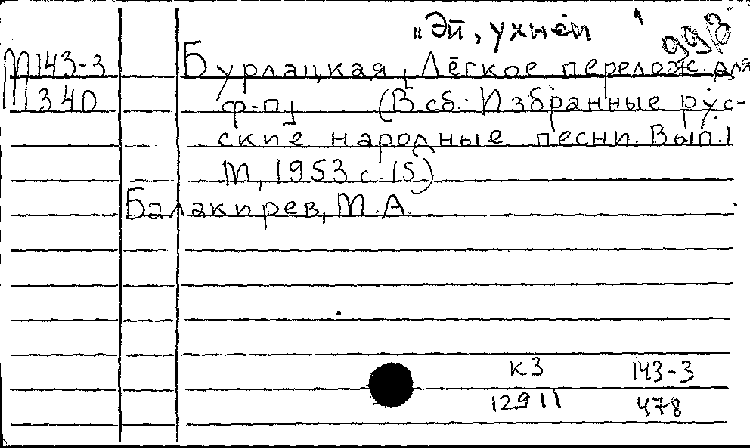 „Эй, ухнем" 993
М143-3 Бурлацкая, Лёгкое перелож. для
340 ф-п] (В сб.: Избранные рус-
ские народные песни. Вып. 1
М, 1953 с. 15)
Балакирев, М.А.
К3 143-3
12911 478